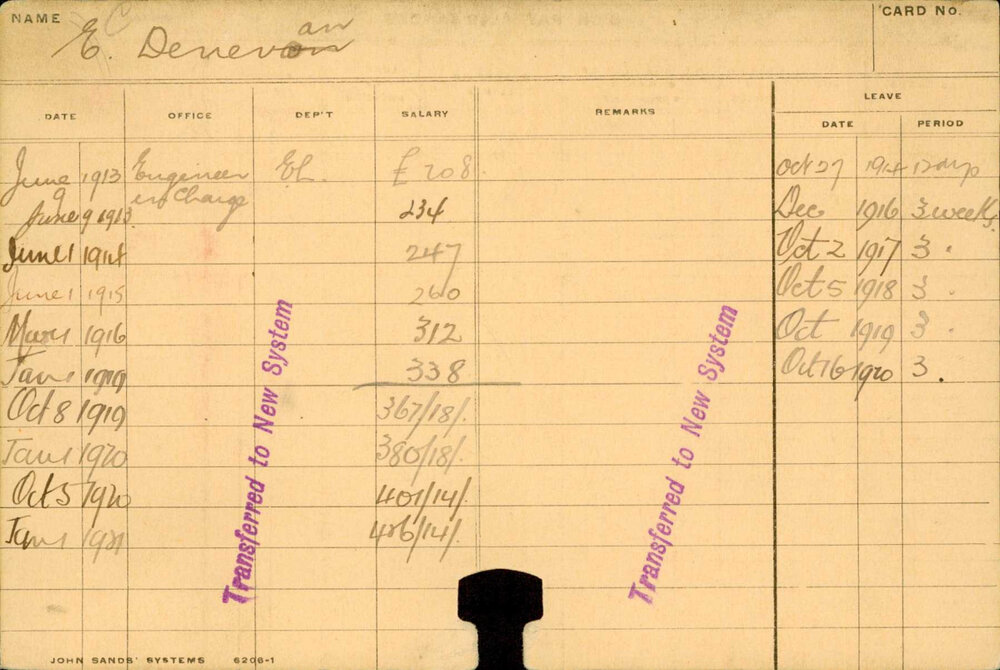 NAME E. C Denevan
CARD No.
LEAVE
DATE OFFICE DEP'T SALARY REMARKS DATE PERIOD
June 9 1913 Engineer in Charge El. £ 208 Oct 27 1914 12 days
June 9 1913 234 Dec 1916 3 weeks
June 1 1914 247 Oct 2 1917 3 "
June 1 1915 260 Oct 5 1918 3 "
Mar 1 1916 312 Oct 1919 3 "
Jan 1 1919 338 Oct 16 1920 3 .
Oct 8 1919 367/18/.
Jan 1 1920 380/18/.
Oct 5 1920 401/14/.
Jan 1 1921 426/14/.
Transferred to New System
Transferred to New System
JOHN SANDS' SYSTEMS 6206-1